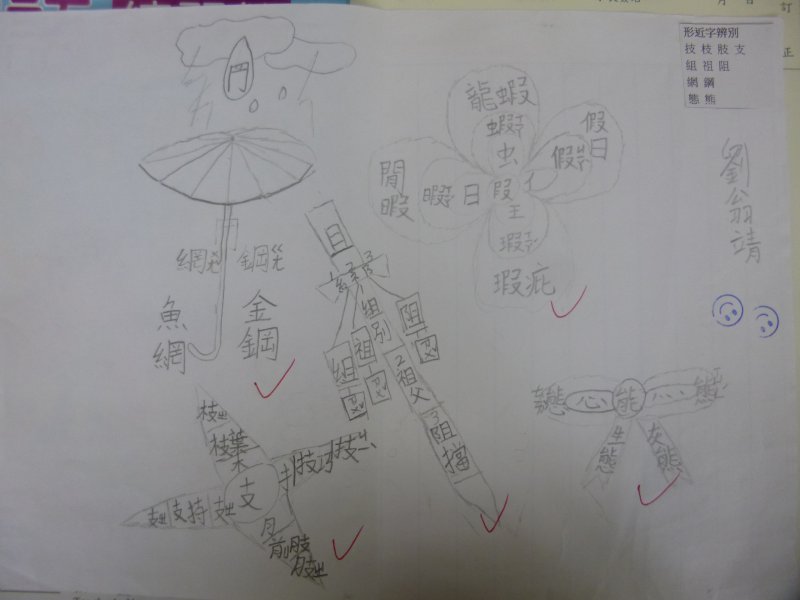 形近字辨別
技 枝 肢 支
組 祖 阻
網 鋼
態 熊
劉翁靖
網
鋼
魚網
金鋼
龍蝦
蝦
虫
假日
假
亻
叚
日
暇
閒暇
王
瑕
瑕疵
且
組別
組
祖
阻
2祖父
3阻擋
支
枝
枝葉
木
扌
技巧
技
支持
支
月
前肢
肢
能
心
態
灬
熊
生態
灰熊